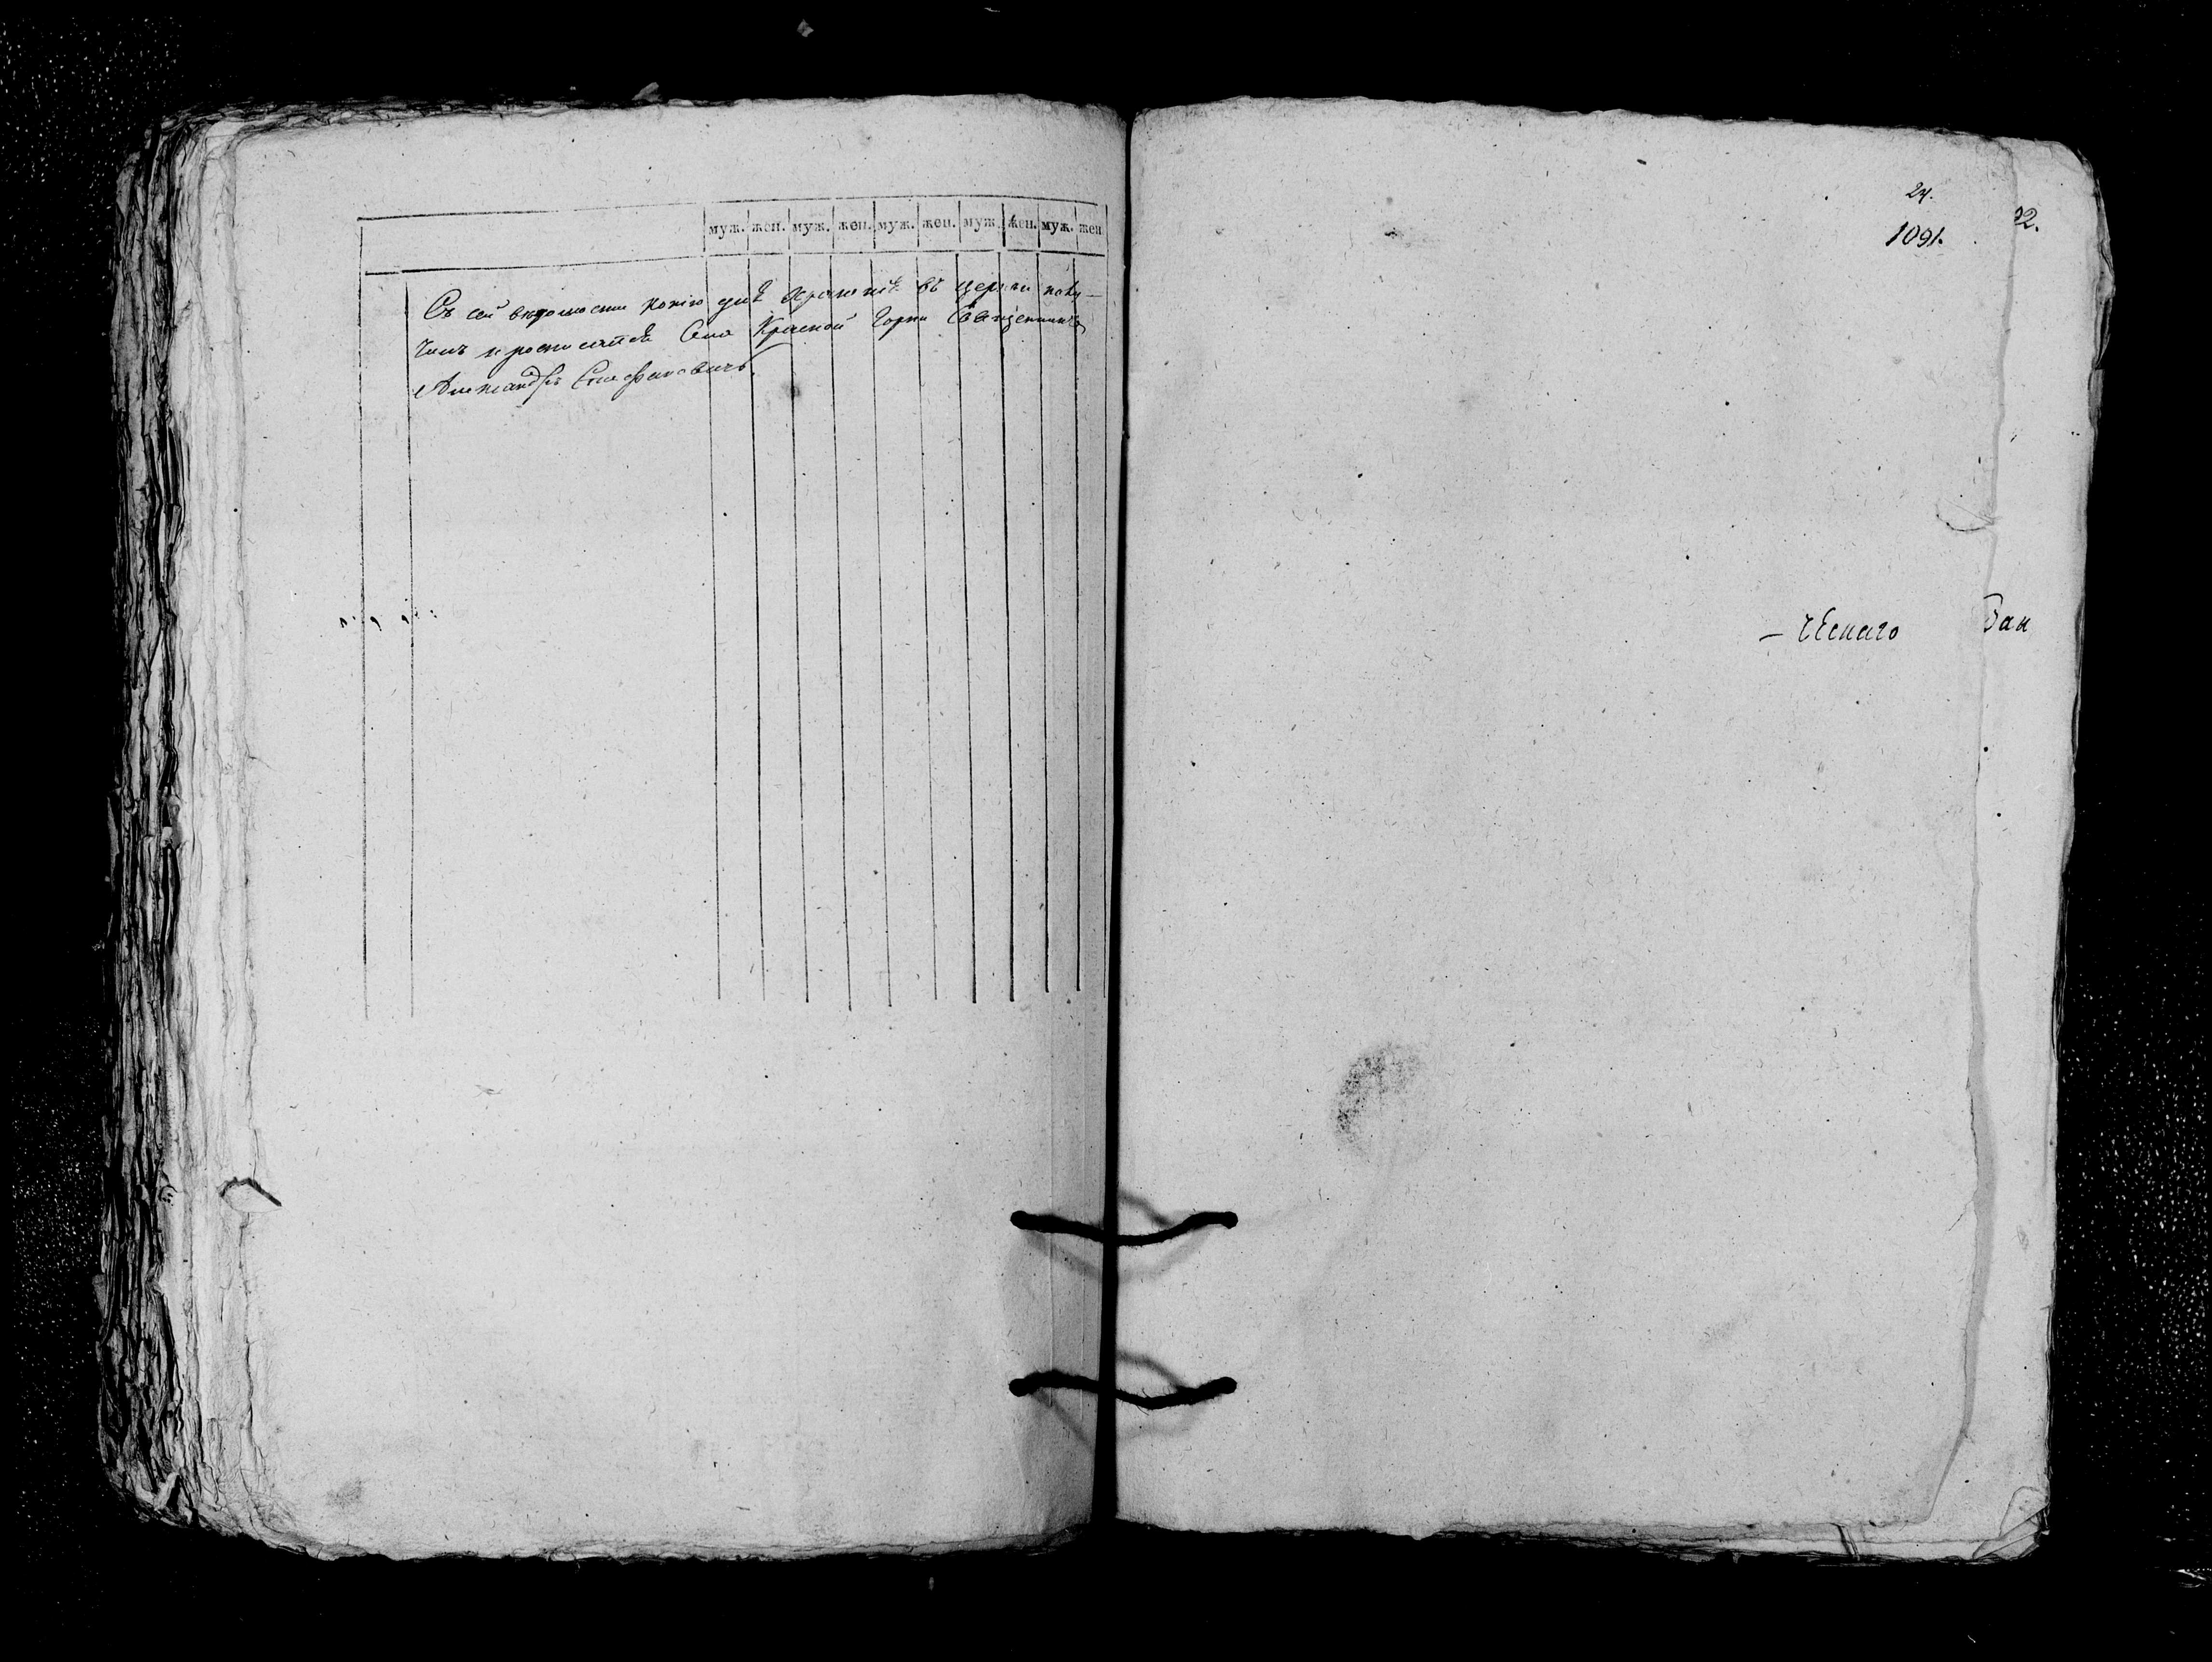 муж. жен. муж. жен. муж. жен. муж. жен. муж. жен.
Съ сей вѣдомости копію для храненія въ церкви полу-
чилъ и росписался Села Красной Горки Священникъ
Александръ Стефановичъ.
24.
1091.
92.
– ческаго
Зак